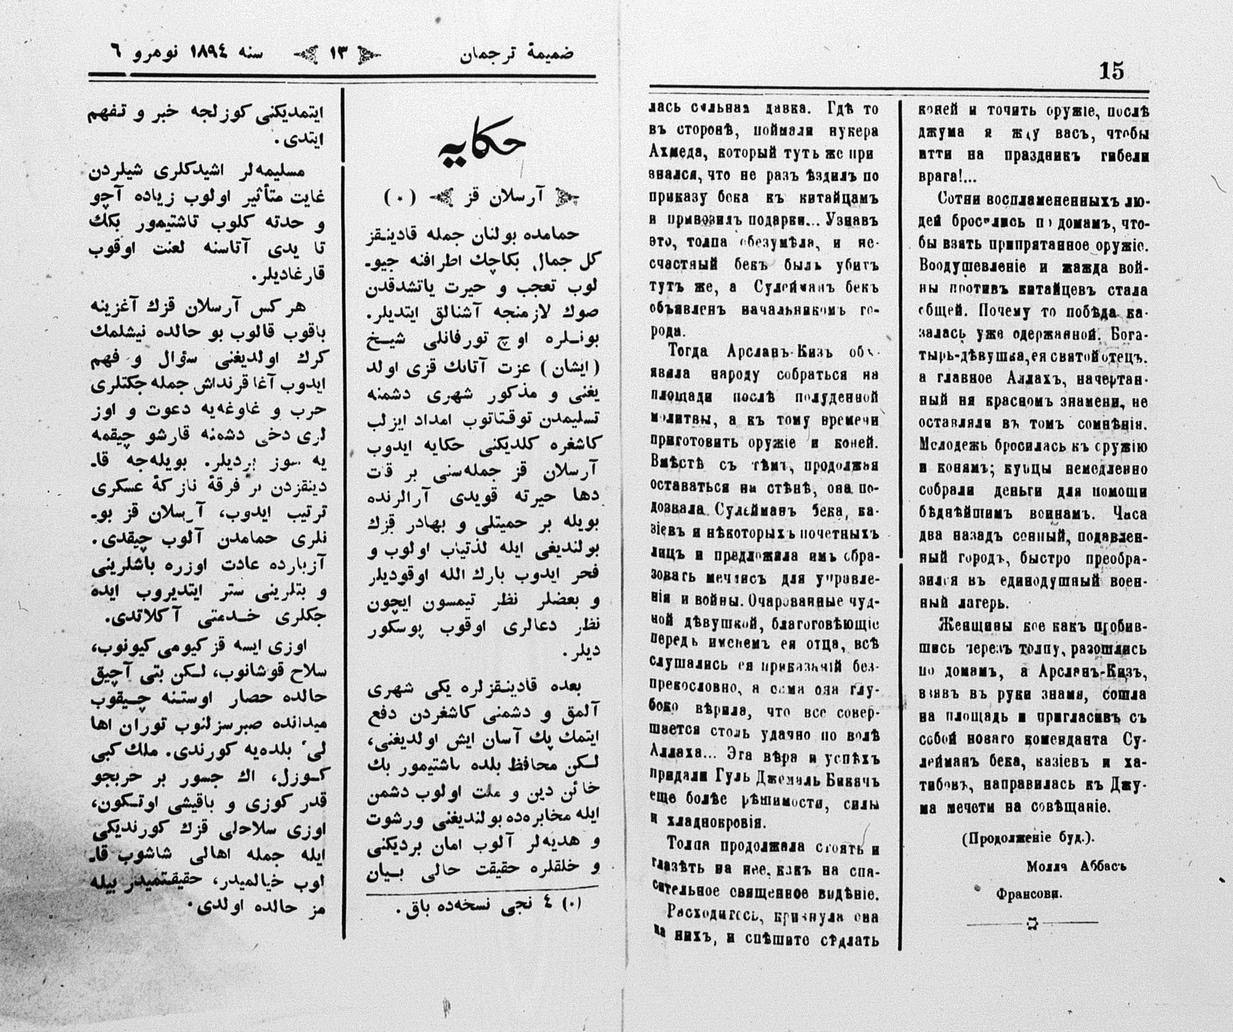 ضميمۀ ترجمان
١٣
سنه ١٨٩٤ نومرو ٦
حكايه
آرسلان قز (٠)
حمامده بولنان جمله قادينقز
كل جمال بكاچك اطرافنه جيو-
لوب تعجب و حيرت ياتشدقدن
صوك لازمنجه آشنالق ايتديلر.
بونلره اوچ تورفانلى شيخ
(ايشان) عزت آتانك قزى اولد
يغنى و مذكور شهرى دشمنه
تسليمدن توقتاتوب امداد ايزلب
كاشغره كلديكنى حكايه ايدوب
آرسلان قز جمله‌سنى بر قات
دها حيرته قويدى آرالرنده
بويله بر حميتلى و بهادر قزك
بولنديغى ايله لذتياب اولوب و
فحر ايدوب بارك الله اوقوديلر
و بعضلر نظر تيمسون ايچون
نظر دعالرى اوقوب پوسكور
ديلر.
بعده قادينقزلره يكى شهرى
آلمق و دشمنى كاشغردن دفع
ايتمك پك آسان ايش اولديغنى،
لكن محافظ بلده تاشتيمور بك
خائن دين و ملت اولوب دشمن
ايله مخابره‌ده بولنديغنى ورشوت
و هديه‌لر آلوب امان برديكنى
و خلقلره حقيقت حالى بيان
(٠) ٤ نجى نسخه‌ده باق.
ايتمديكنى كوزلجه خبر و تفهم
ايتدى.
مسليمه‌لر اشيدكلرى شيلردن
غايت متأثير اولوب زياده آچو
و حدته كلوب تاشتيمور بكك
تا يدى آتاسنه لعنت اوقوب
قارغاديلر.
هر كس آرسلان قزك آغزينه
باقوب قالوب بو حالده نيشلمك
كرك اولديغنى سؤال و فهم
ايدوب آغا قرنداش جمله جكتلرى
حرب و غاوغه‌يه دعوت و اوز
لرى دخى دشمنه قارشو چيقمه
يه سوز برديلر. بويله‌جه قا-
دينقزدن بر فرقۀ نازكۀ عسكرى
ترتيب ايدوب، آرسلان قز بو-
نلرى حمامدن آلوب چيقدى.
آزبارده عادت اوزره باشلرينى
و بتلرينى ستر ايتديروب ايده
جكلرى خدمتى آكلاتدى.
اوزى ايسه قز كيومى كيونوب،
سلاح قوشانوب، لكن بتى آچيق
حالده حصار اوستنه چيقوب
ميدانده صبرسزلنوب توران اها
لى بلده‌يه كورندى. ملك كبى
كوزل، اك جسور بر حربجو
قدر كوزى و باقيشى اوتكون،
اوزى سلاحلى قزك كورنديكى
ايله جمله اهالى شاشوب قا-
لوب خيالميدر، حقيقتميدر بيله
مز حالده اولدى.
15
лась сильная давка. Гдѣ то
въ сторонѣ, поймали нукера
Ахмеда, который тутъ же при
знался, что не разъ ѣздилъ по
приказу бека къ китайцамъ
и привозилъ подарки... Узнавъ
это, толпа обезумѣла, и не-
счастный бекъ былъ убитъ
тутъ же, а Сулейманъ бекъ
объявленъ начальникомъ го-
рода.
Тогда Арсланъ-Кизъ объ-
явила народу собраться на
площади послѣ полуденной
молитвы, а къ тому времени
приготовить оружіе и коней.
Вмѣстѣ съ тѣмъ, продолжая
оставаться на стѣнѣ, она по-
дозвала Сулейманъ бека, ка-
зіевъ и нѣкоторыхъ почетныхъ
лицъ и предложила имъ обра-
зовать мечлисъ для управле-
нія и войны. Очарованные чуд-
ной дѣвушкой, благоговѣющіе
передъ именемъ ея отца, всѣ
слушались ея приказаній без-
прекословно, а сама она глу-
боко вѣрила, что все совер-
шается столь удачно по волѣ
Аллаха... Эта вѣра и успѣхъ
придали Гуль Джемаль Бикачъ
еще болѣе рѣшимости, силы
и хладнокровія.
Толпа продолжала стоять и
глазѣть на нее, какъ на спа-
сительное священное видѣніе.
Расходитесь, крикнула она
на нихъ, и спѣшите сѣдлать
коней и точить оружіе, послѣ
джума я жду васъ, чтобы
итти на праздникъ гибели
врага!...
Сотни воспламененныхъ лю-
дей бросились по домамъ, что-
бы взять припрятанное оружіе.
Воодушевленіе и жажда вой-
ны противъ китайцевъ стала
общей. Почему то побѣда ка-
залась уже одержанной. Бога-
тырь-дѣвушка, ея святой отецъ.
а главное Аллахъ, начертан-
ный ня красномъ знамени, не
оставляли въ томъ сомнѣнія.
Молодежь бросилась къ оружію
и конямъ; купцы немедленно
собрали деньги для помощи
бѣднѣйшимъ воинамъ. Часа
два назадъ сонный, подавлен-
ный городъ, быстро преобра-
зился въ единодушный воен-
ный лагерь.
Женщины кое какъ пробив-
шись черезъ толпу, разошлись
по домамъ, а Арсланъ-Кизъ,
взявъ въ руки знамя, сошла
на площадь и пригласивъ съ
собой новаго коменданта Су-
лейманъ бека, казіевъ и ха-
тибовъ, направилась къ Джу-
ма мечети на совѣщаніе.
(Продолженіе буд.).
Молла Аббасъ
Франсови.